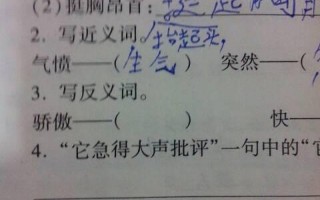 (2)挺胸昂首:
抬起头,
2. 写近义词。
气愤——(生气) 突然——(
3. 写反义词。
骄傲——( ) 快——(
4. “它急得大声批评”一句中的“它